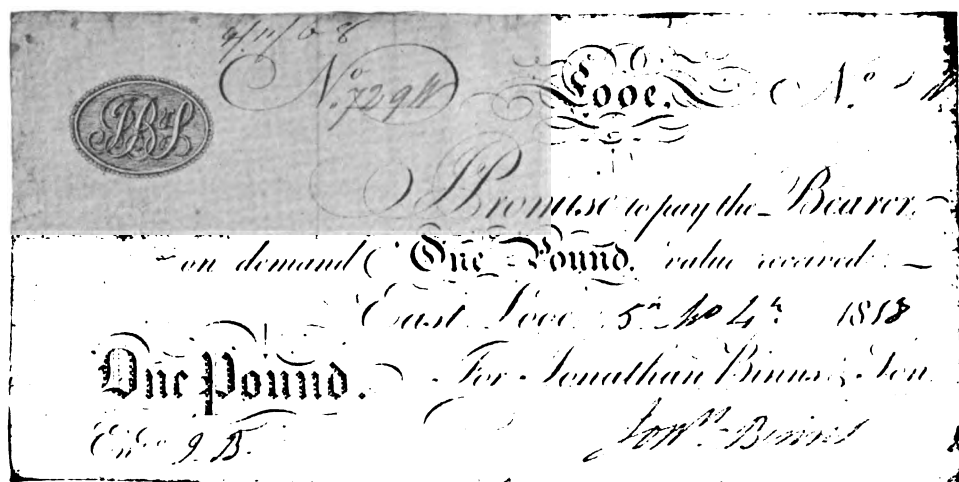 No. 729
Looe. No.
I Promise to pay the Bearer
on demand One Pound. value received
East Looe 5th Mo 4th 1818
One Pound. For Jonathan Binns & Son
Entd J. B. Jonn. Binns